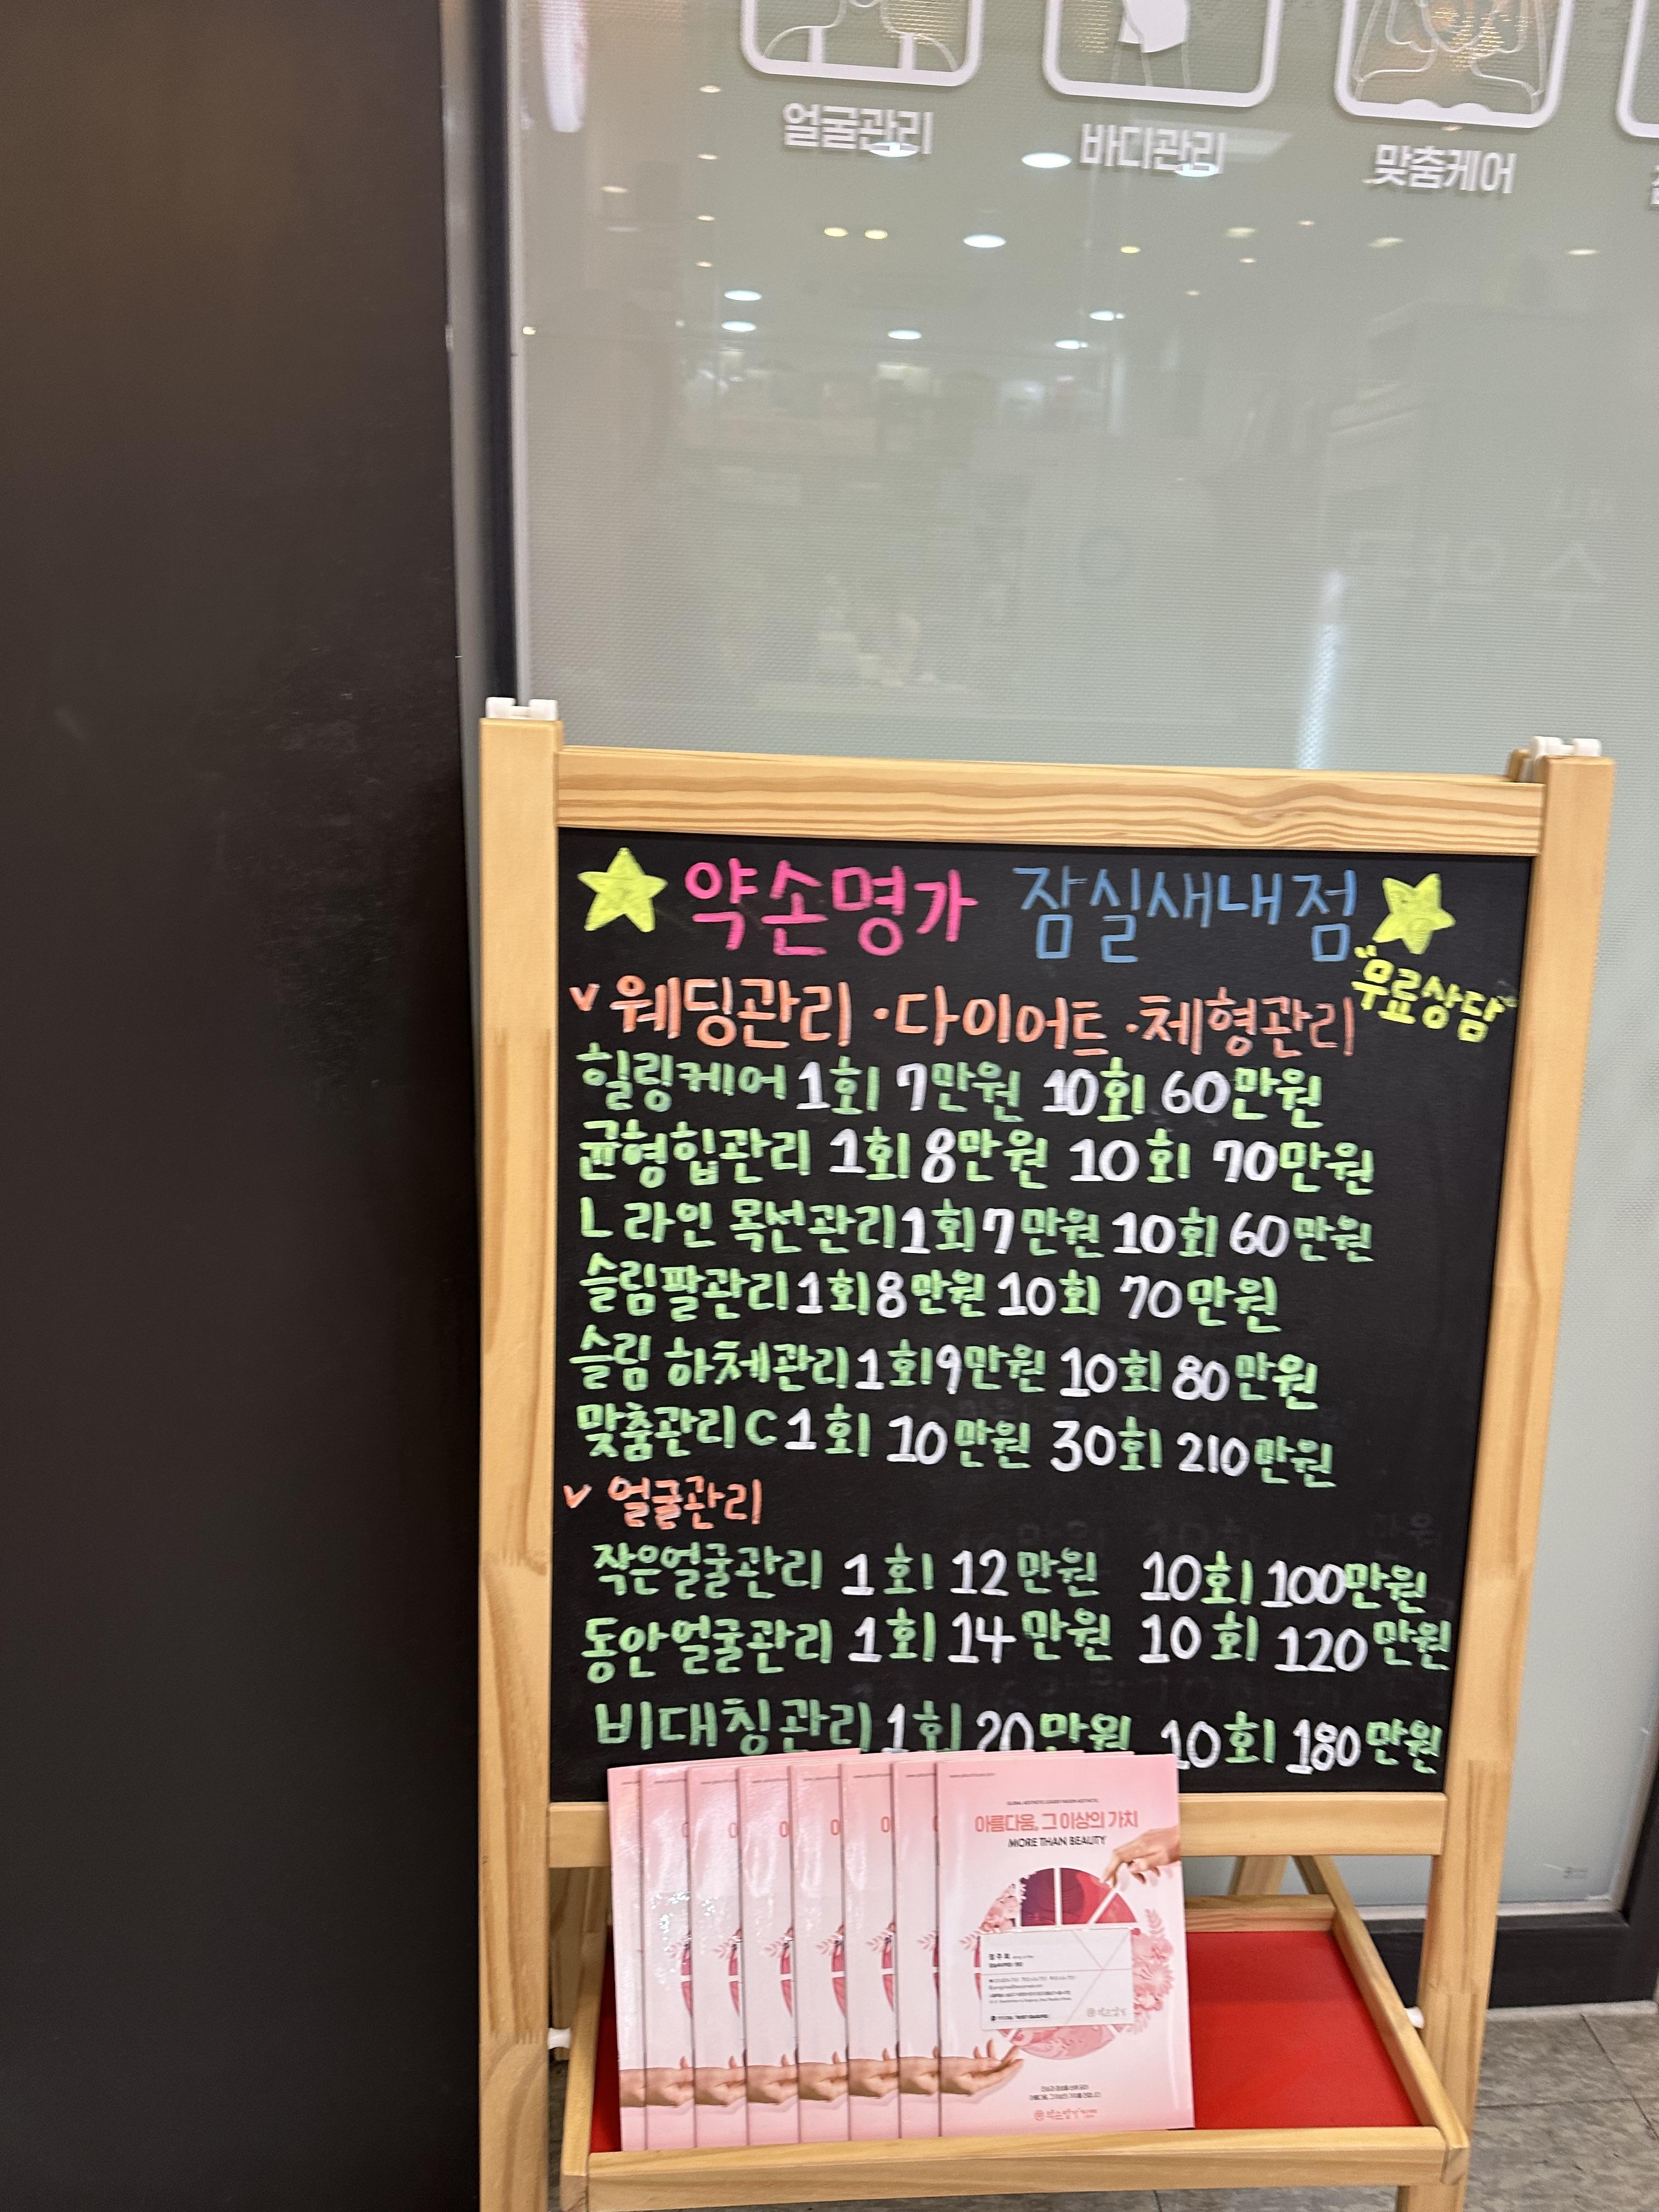 얼굴관리 바디관리 맞춤케어
약손명가 잠실새내점
"무료상담"
v 웨딩관리 ·다이어트 ·체형관리
힐링케어 1회 7만원 10회 60만원
균형힙관리 1회 8만원 10회 70만원
L라인 목선관리 1회 7만원 10회 60만원
슬림팔관리 1회 8만원 10회 70만원
슬림 하체관리 1회 9만원 10회 80만원
맞춤관리C 1회 10만원 30회 210만원
v 얼굴관리
작은얼굴관리 1회 12만원 10회 100만원
동안얼굴관리 1회 14만원 10회 120만원
비대칭관리 1회 20만원 10회 180만원
아름다움, 그 이상의 가치
MORE THAN BEAUTY
약손명가